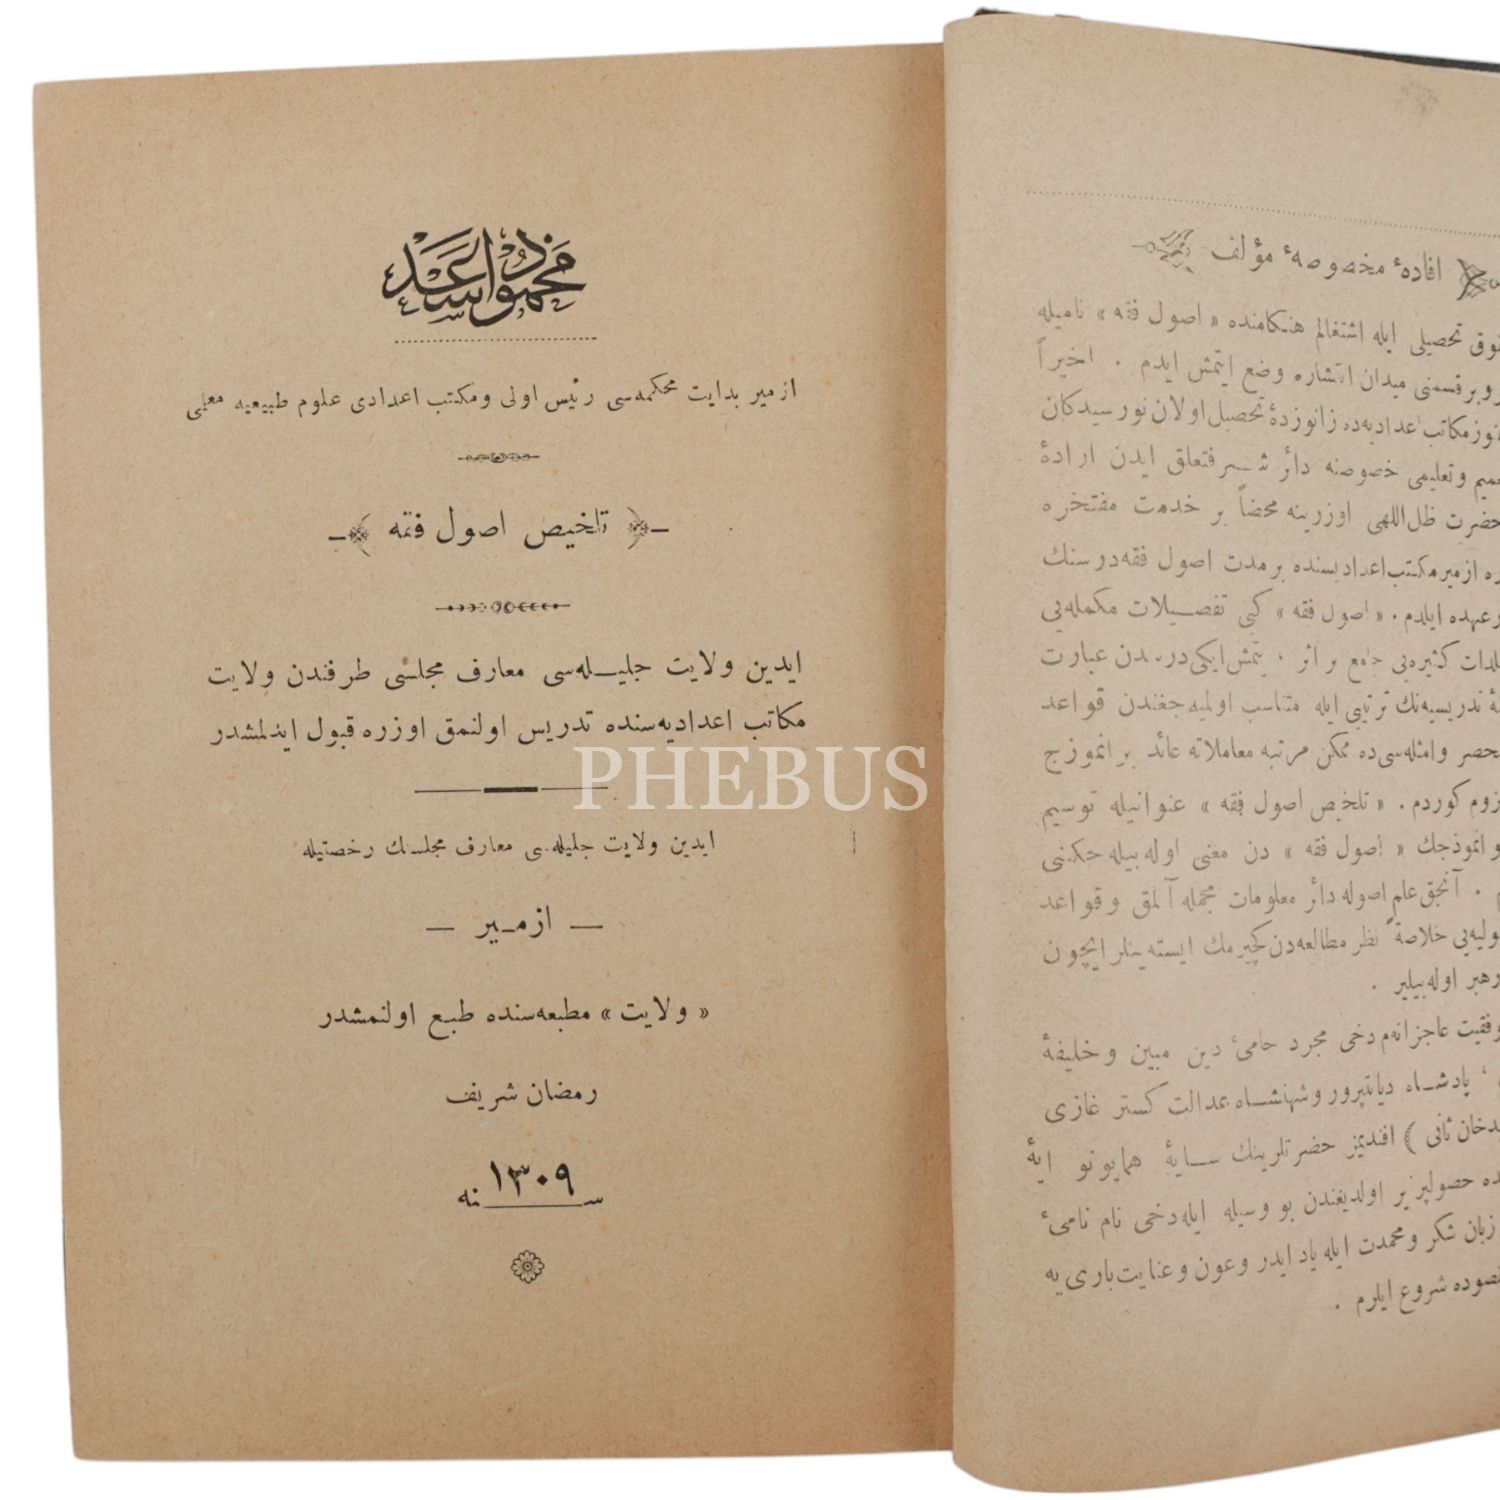 محمود اسعد
ازمیر بدایت محکمه‌سی رئیس اولی ومکتب اعدادی علوم طبیعیه معلمی
تلخیص اصول فقه
ایدین ولایت جلیله‌سی معارف مجلسی طرفندن ولایت
مکاتب اعدادیه‌سنده تدریس اولنمق اوزره قبول ایدلمشدر
ایدین ولایت جلیله‌سی معارف مجلسنك رخصتیله
— ازمیر —
« ولایت » مطبعه‌سنده طبع اولنمشدر
رمضان شریف
سنه ١٣٠٩
PHEBUS
افادهٔ مخصوصهٔ مؤلف
تحصیلی ایله اشتغالم هنكامنده « اصول فقه » نامیله
وبرقسمنی میدان انتشاره وضع ایتمش ایدم . اخیراً
مکاتب اعدادیه‌ده زانوزدهٔ تحصیل اولان نورسیدکان
وتعلیمی خصوصنه دائر شرفتعلق ایدن ارادهٔ
حضرت ظل‌اللهی اوزرینه محضاً بر خدمت مفتخره
ازمیر مکتب اعدادیسنده بر مدت اصول فقه درسنك
عهده ایلدم . « اصول فقه » کبی تفصیلات مکمله‌یی
کثیره‌یی جامع بر اثر ، یتمش ایکی درسدن عبارت
تدریسیه‌نك ترتیبی ایله متناسب اولمیه‌جغندن قواعد
حصر وامثله‌سی‌ده ممکن مرتبه معاملاته عائد بر انموزج
کوردم . « تلخیص اصول فقه » عنوانیله توسیم
انموذجك « اصول فقه » دن مغنی اوله‌بیله‌جکنی
. آنجق علم اصوله دائر معلومات مجمله آلمق وقواعد
خلاصةً نظر مطالعه‌دن کچیرمك ایسته‌ینلر ایچون
رهبر اوله‌بیلیر .
عاجزانه‌م دخی مجرد حامیٔ دین مبین وخلیفهٔ
، پادشاه دیانتپرور وشهنشاه معدالت کستر غازی
خان ثانی ) افندیمز حضرتلرینك سایهٔ همایونو ایهٔ
حصولپزیر اولدیغندن بو وسیله ایله‌دخی نام نامیٔ
زبان شکر ومحمدت ایله یاد ایدر وعون وعنایت باری یه
شروع ایلرم .